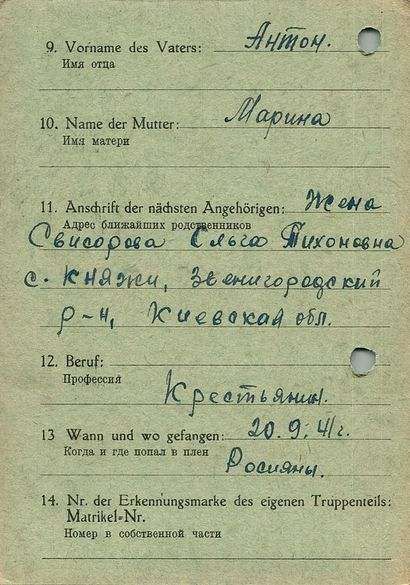 9. Vorname des Vaters: Антон.
Имя отца
10. Name der Mutter: Марина
Имя матери
11. Anschrift der nächsten Angehörigen: Жена
Адрес ближайших родственников
Свисорова Ольга Тихоновна
с. Княжи, Звенигородский
р-н, Киевская обл.
12. Beruf:
Профессия
Крестьянин.
13 Wann und wo gefangen: 20. 9. 41 г.
Когда и где попал в плен
Росияны.
14. Nr. der Erkennungsmarke des eigenen Truppenteils:
Matrikel-Nr.
Номер в собственной части